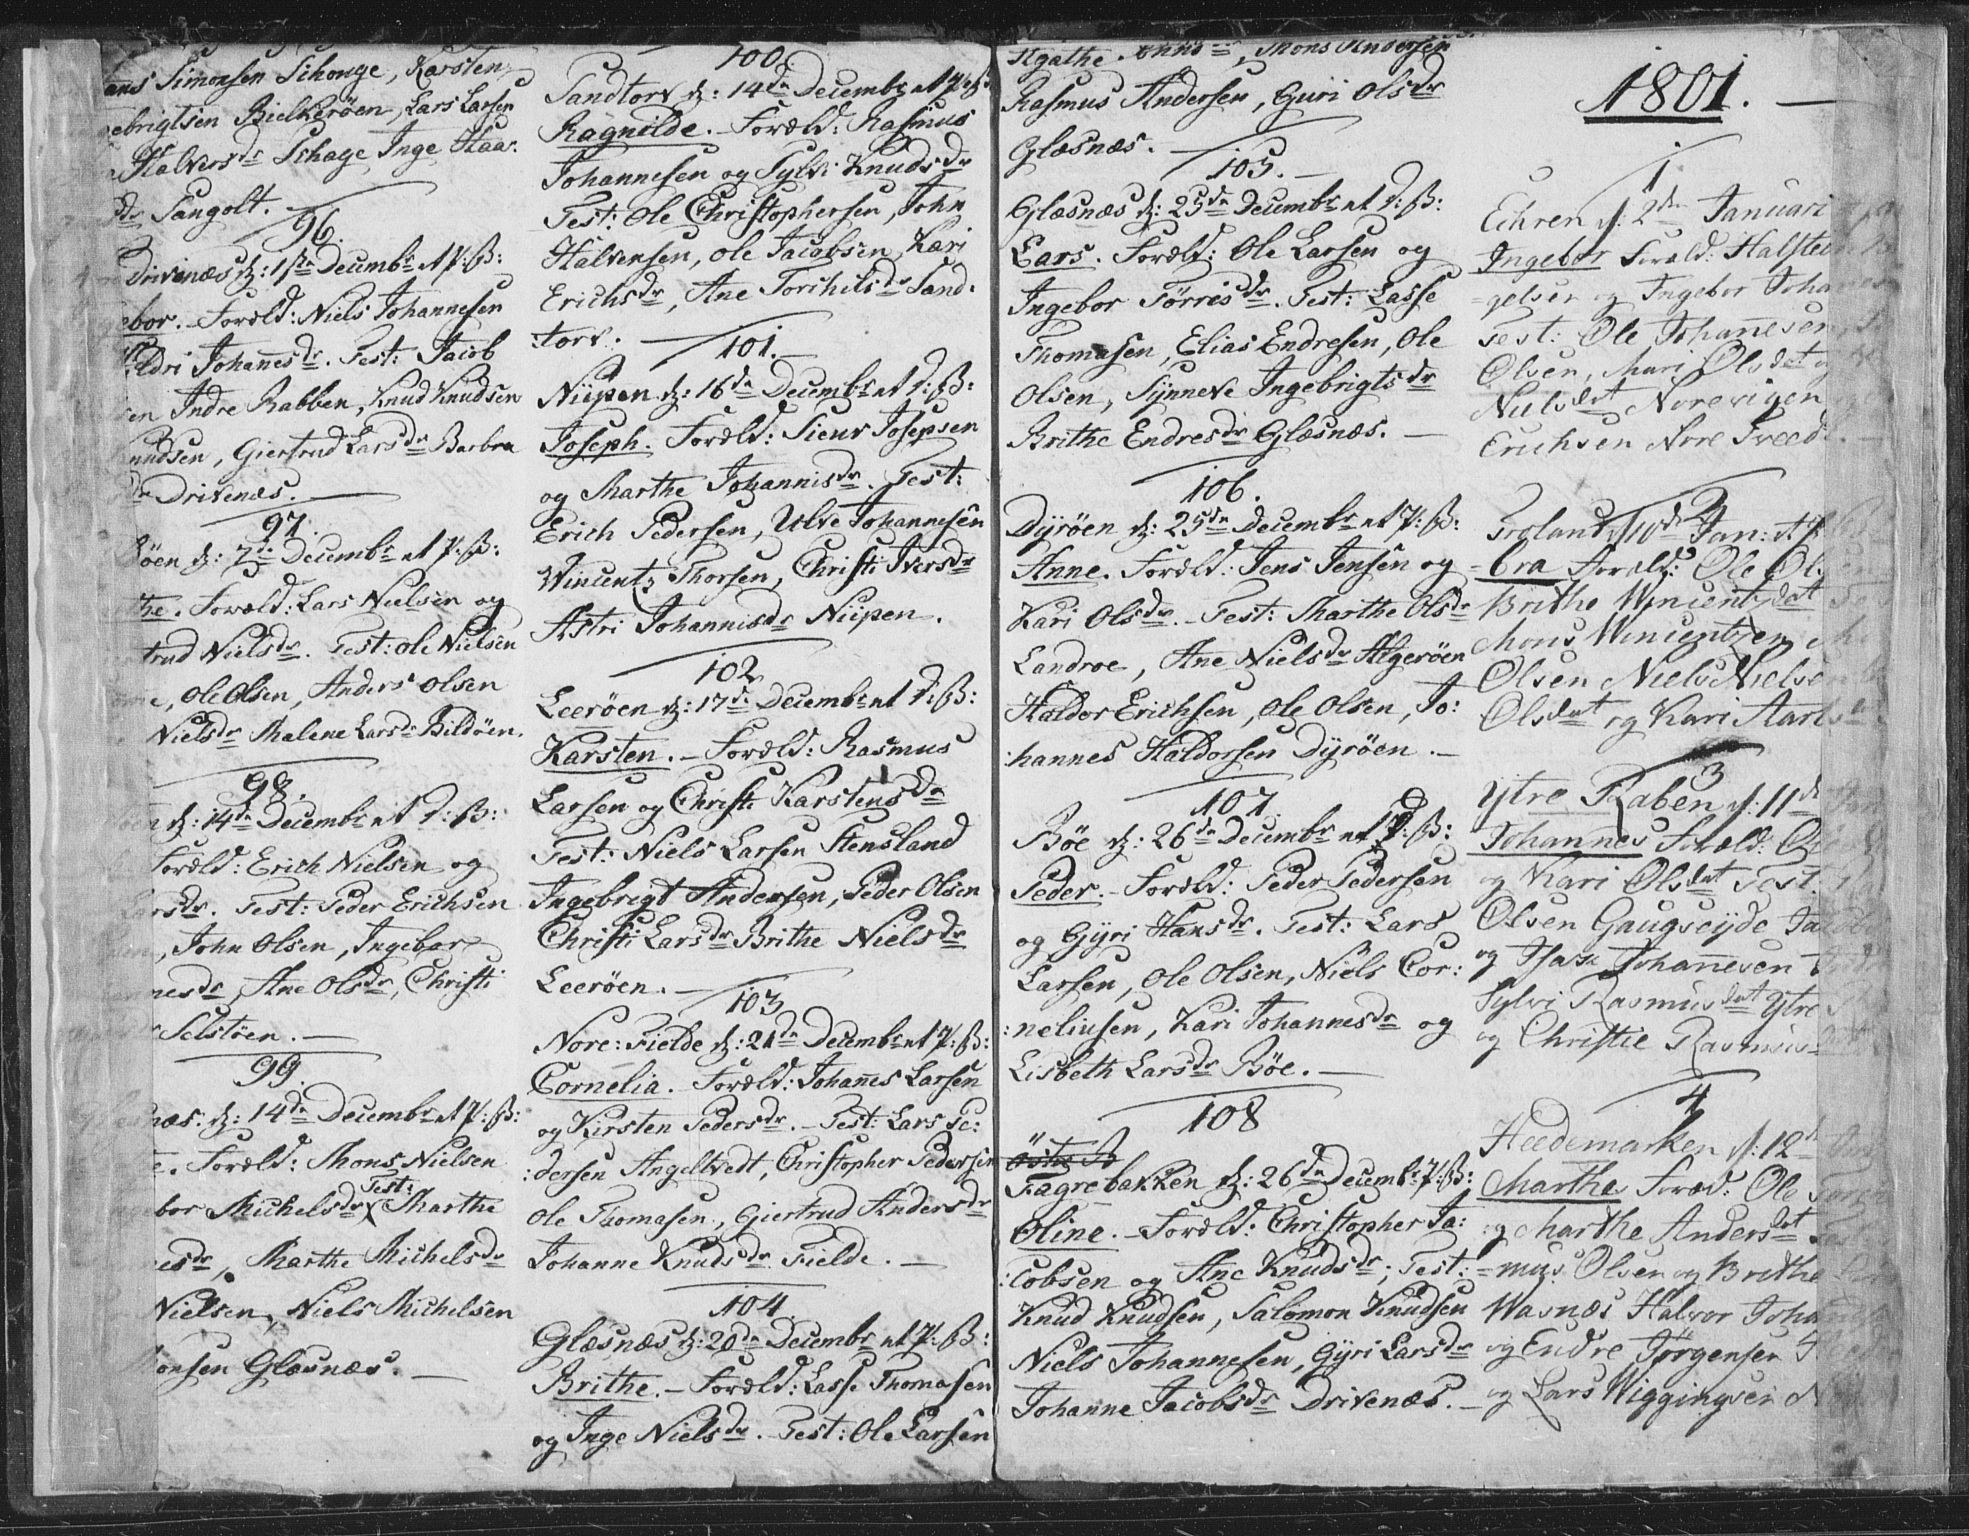 Simonsen Schouge, Karsten
ebrigtsen Bielkerøen, Lars Larsen
Halversdr Schage, Inge Haa:
Sangolt.
96.
Drivenæs d: 1ste Decembr
ebor. Foreld: Niels Johannesen
Johanesdr. Test: Jacob
Indre Rabben, Knud Knudsen
nudsen, Giertrud Larsdr Barbra
Drivenæs.
97.
öen d: 7de Decembr
the. Foreld: Lars Nielsen og
trud Nielsdr. Test: ole Nielsen
ole Olsen, Anders olsen
Nielsdr Malene Larsdr Bildöen.
98.
d: 14de Decembr
Foreld: Erich Nielsen og
Larsdr. Test: Peder Erichsen
John Olsen, Ingebor
nesdr, Ane Olsdr, Christi
Selstöen.
99.
næs. d: 14de Decembr
Foreld: Mons Nielsen
bor Michelsdr Test: Marthe
esdr, Marthe Michelsdr
Nielsen, Niels Michelsen
onsen Glæsnæs.
100
Sandtorv d: 14de Decembr
Ragnilde. Foreld: Rasmus
Johannesen og Sylvi Knudsdr
Test: Ole Christophersen, John
Halvensen, ole Jacobsen, Kari
Erichsdr, Ane Torchilsdr Sand:
:torv.
101.
Niipen d: 16de Decembr
Joseph. Foreld: Sieur Josepsen
og Marthe Johannisdr. Test:
Erich Pedersen, Ulve Johannesen
Wincentz Thorsen, Christi Iversdr
Astri Johannisdr Niipen.
102
Leeröen d: 17de Decembr
Karsten. Foreld: Rasmus
Larsen og Christi Karstensdr
Test: Niels Larsen Stensland
Ingebrigt Andersen, Peder Olsen
Christi Larsdr Brithe Nielsdr
Leeröen.
103
Nore: Fielde d: 21de Decembr
Cornelia. Foreld: Johanes Larsen
og Kirsten Pedersdr. Test: Lars Pe:
:dersen Angeltvedt, Christopher Pedersen
ole Thomasen, Giertrud Andersdr
Johanne Knudsdr Fielde.
104
Glæsnæs d: 20de Decembr
Brithe. Foreld: Lasse Thomasen
og Inge Nielsdr. Test: Ole Larsen
Agathe Mons Andersen
Rasmus Andersen, Guri Olsdr
Glæsnæs.
105.
Glæsnæs d: 25de Decembr
Lars. Foreld: Ole Larsen og
Ingebor Törresdr. Test: Lasse
Thomasen, Elias Endresen, Ole
Olsen, Synneve Ingebrigtsdr
Brithe Endresdr Glæsnæs.
106.
Dyröen d: 25de Decembr
Anne. Foreld: Jens Jensen og
Kari Olsdr. Test: Marthe Olsdr
Landroe, Ane Nielsdr Algeröen
Haldor Erichsen, Ole Olsen, Jo:
:hannes Haldorsen Dyröen.
107
Böe d: 26de Decembr
Peder. Foreld: Peder Pedersen
og Gyri Hansdr. Test: Lars
Larsen, Ole Olsen, Niels Cor:
:neliusen, Kari Johannesdr og
Lisbeth Larsdr Böe.
108
Fagrebakken d: 26de Decembr
Oline. Foreld: Christopher Ja:
:cobsen og Ane Knudsdr; Test:
Knud Knudsen, Salomon Knudsen
Niels Johannesen, Gyri Larsdr
Johanne Jacobsdr Drivenæs.
1801.
1
Echren d: 2den Januari
Ingebor Foreld: Halsten
gelsen og Ingebor Johan
Test: Ole Johanesen
Olsen, Mari Olsdat og
Nielsdat Norevigen
Erichsen Nore Treed
2
Troland d: 10de Jan:
bra Foreld: Ole Ol
Brithe Wincentzdat
Mons Wincentzen
Olsen Niels Nielse
Olsdat og Kari Aarl
3
Ytre Raben d: 11de
Johannes Foreld:
og Kari Olsdat Test.
Olsen Gaugseyde Jacob
og Isak Johanesen
Sylvi Rasmusdat Ytre
og Christie Rasmus
4
Heedemarken d: 12
Marthe Foreld: Ole
og Marthe Andersdat
mus Olsen og Brithe
Wasnæs Halvor Joha
og Endre Jörgensen
og Lars Wiggingsen